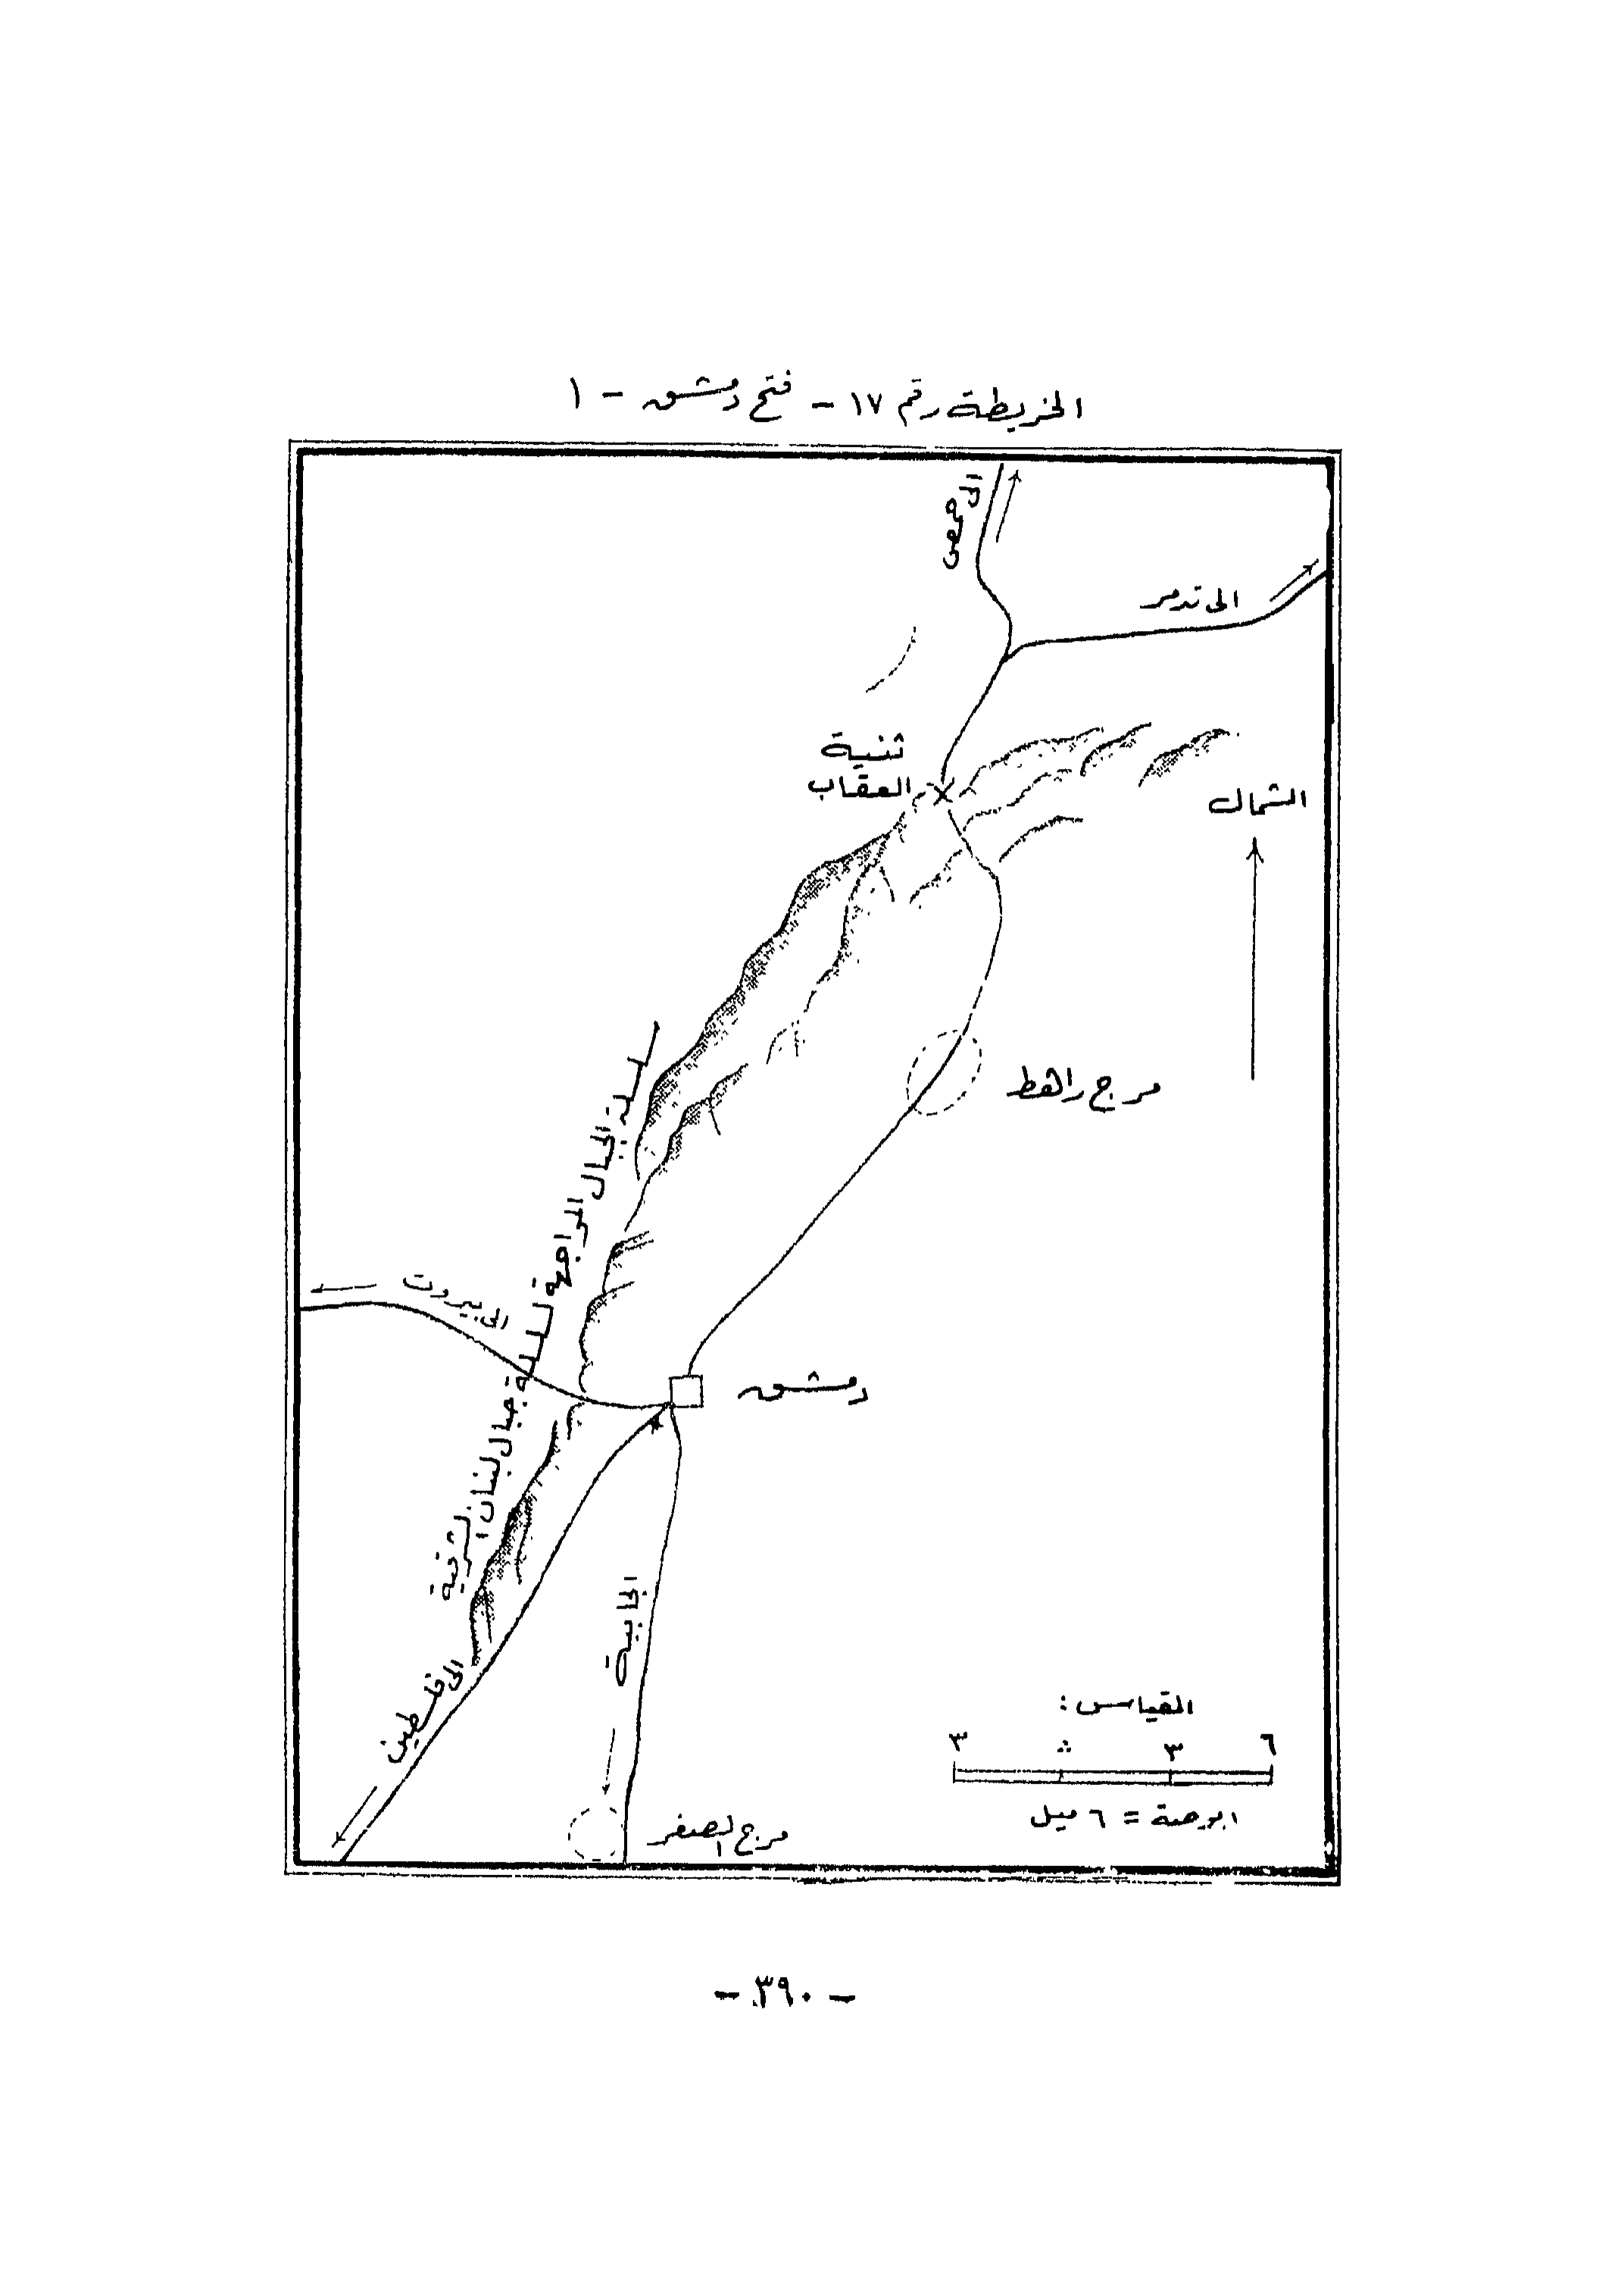 الخريطة رقم ١٧ - فتح دمشق - ١
الى حمص
الى تدمر
ثنية
العقاب
الشمال
مرج راهط
سلسلة الجبال المواجهة لسلسلة جبال لبنان الشرقية
الى بيروت
دمشق
الجابية
الى فلسطين
القياس :
٣ ٣ ٦
ابوصة = ٦ ميل
مرج الصفر
- ٣٩٠ -